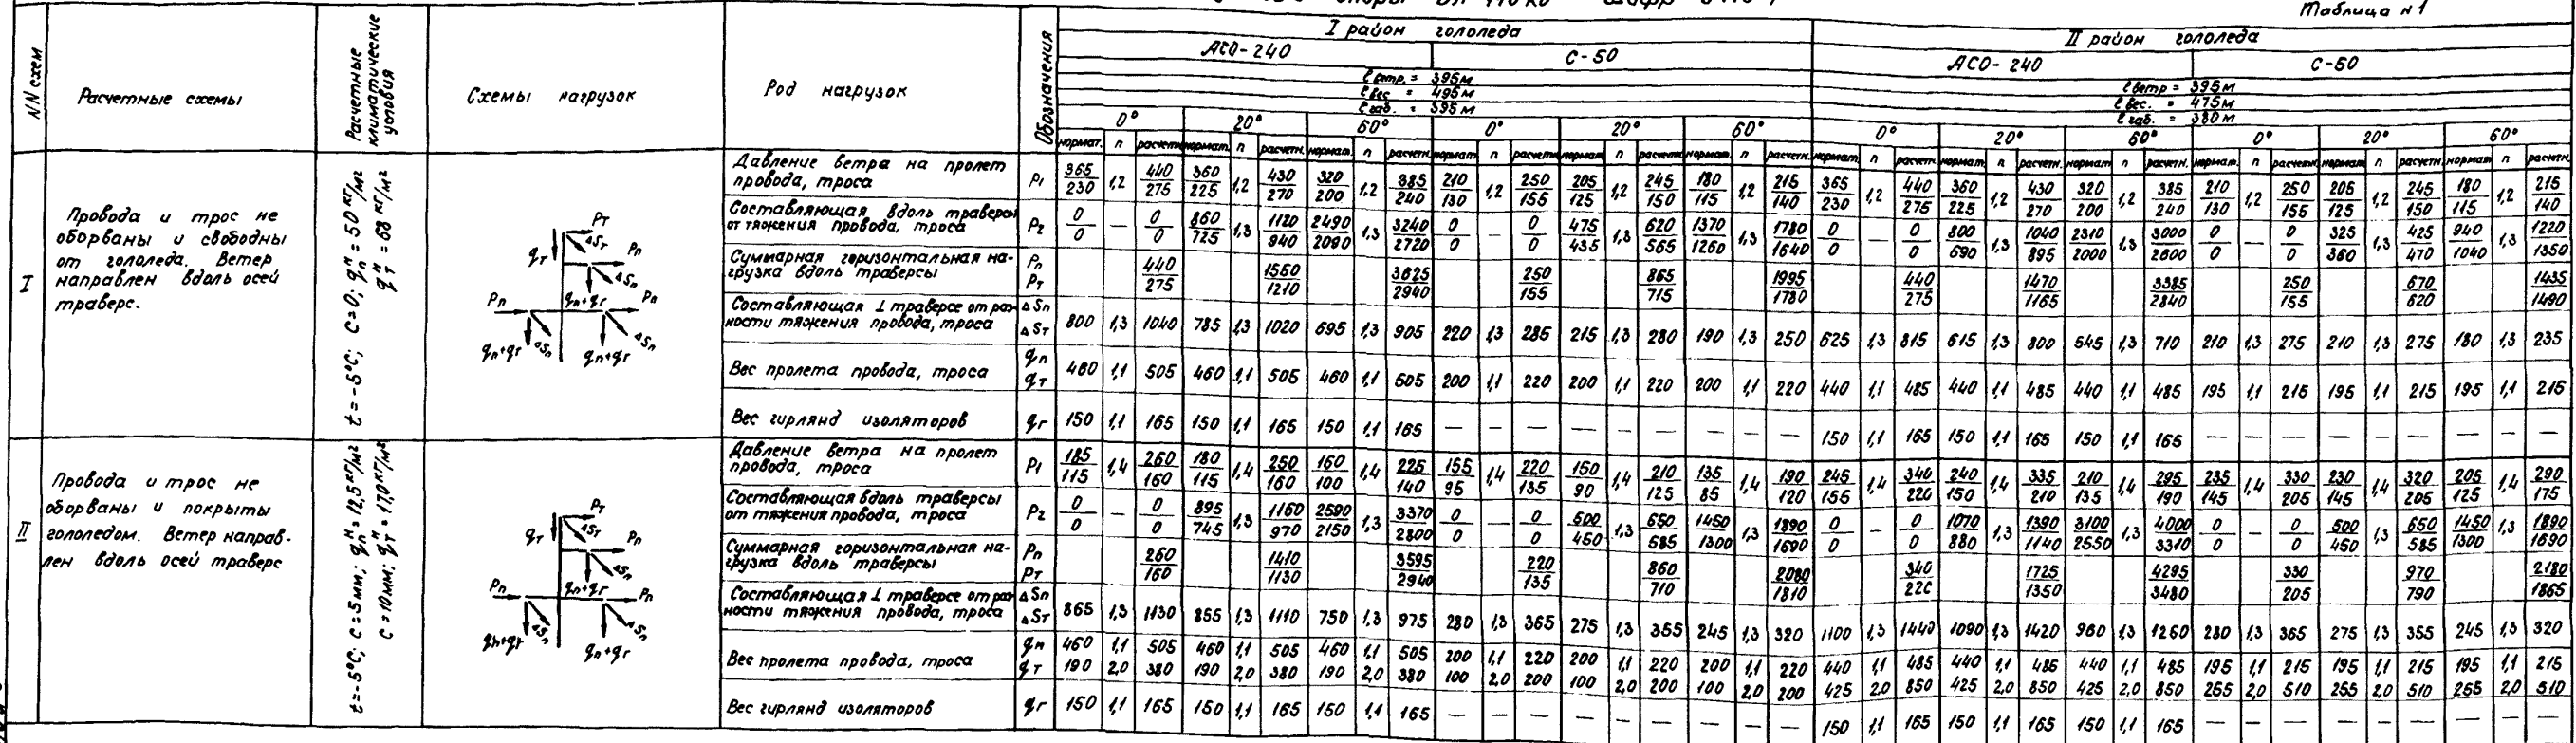 опоры ВЛ 110 кв шифр
Таблица N1
NN схем
Расчетные схемы
Расчетные климатические условия
Схемы нагрузок
Род нагрузок
Обозначения
I район гололеда
II район гололеда
АСО-240
С-50
АСО-240
С-50
ℓ ветр. = 395м
ℓ вес = 495м
ℓ габ. = 395м
ℓ ветр = 395м
ℓ вес. = 475м
ℓ габ. = 380м
0° 20° 60° 0° 20° 60° 0° 20° 60° 0° 20° 60°
нормат. n расчетн. нормат. n расчетн. нормат. n расчетн. нормат. n расчетн. нормат. n расчетн. нормат. n расчетн. нормат. n расчетн. нормат. n расчетн. нормат. n расчетн. нормат. n расчетн. нормат. n расчетн. нормат. n расчетн.
I
Провода и трос не
оборваны и свободны
от гололеда. Ветер
направлен вдоль осей
траверс.
t=-5°C; C=0; qпᴴ = 50 кг/м²
qтᴴ = 68 кг/м²
Pт
ΔSт
qт
Pп
ΔSп
Pп qп+qг Pп
qп+qг ΔSп qп+qг ΔSп
Давление ветра на пролет
провода, троса
P1 365/230 1,2 440/275 360/225 1,2 430/270 320/200 1,2 385/240 210/130 1,2 250/155 205/125 1,2 245/150 180/115 1,2 215/140 365/230 1,2 440/275 360/225 1,2 430/270 320/200 1,2 385/240 210/130 1,2 250/155 205/125 1,2 245/150 180/115 1,2 215/140
Составляющая вдоль траверсы
от тяжения провода, троса
P2 0/0 — 0/0 860/725 1,3 1120/940 2490/2090 1,3 3240/2720 0/0 — 0/0 475/435 1,3 620/565 1370/1260 1,3 1780/1640 0/0 — 0/0 800/690 1,3 1040/895 2310/2000 1,3 3000/2600 0/0 — 0/0 325/360 1,3 425/470 940/1040 1,3 1220/1350
Суммарная горизонтальная на-
грузка вдоль траверсы
Pп Pт 440/275 1550/1210 3625/2940 250/155 865/715 1995/1780 440/275 1470/1165 3385/2840 250/155 670/620 1435/1490
Составляющая ⊥ траверсе от раз-
ности тяжения провода, троса
ΔSп ΔSт 800 1,3 1040 785 1,3 1020 695 1,3 905 220 1,3 285 215 1,3 280 190 1,3 250 625 1,3 815 615 1,3 800 545 1,3 710 210 1,3 275 210 1,3 275 180 1,3 235
Вес пролета провода, троса
qп qт 460 1,1 505 460 1,1 505 460 1,1 505 200 1,1 220 200 1,1 220 200 1,1 220 440 1,1 485 440 1,1 485 440 1,1 485 195 1,1 215 195 1,1 215 195 1,1 215
Вес гирлянд изоляторов
qг 150 1,1 165 150 1,1 165 150 1,1 165 — — — — — — — — — 150 1,1 165 150 1,1 165 150 1,1 165 — — — — — — — — —
II
Провода и трос не
оборваны и покрыты
гололедом. Ветер направ-
лен вдоль осей траверс
t=-5°C; C=5мм; qпᴴ = 12,5 кг/м²
C=10мм; qтᴴ = 17,0 кг/м²
Pт
ΔSт
qт
Pп
ΔSп
Pп qп+qг Pп
qп+qг ΔSп qп+qг ΔSп
Давление ветра на пролет
провода, троса
P1 185/115 1,4 260/160 180/115 1,4 250/160 160/100 1,4 225/140 155/95 1,4 220/135 150/90 1,4 210/125 135/85 1,4 190/120 245/155 1,4 340/220 240/150 1,4 335/210 210/135 1,4 295/190 235/145 1,4 330/205 230/145 1,4 320/205 205/125 1,4 290/175
Составляющая вдоль траверсы
от тяжения провода, троса
P2 0/0 — 0/0 895/745 1,3 1160/970 2590/2150 1,3 3370/2800 0/0 — 0/0 500/450 1,3 650/585 1450/1300 1,3 1890/1690 0/0 — 0/0 1070/880 1,3 1390/1140 3100/2550 1,3 4000/3310 0/0 — 0/0 500/450 1,3 650/585 1450/1300 1,3 1890/1690
Суммарная горизонтальная на-
грузка вдоль траверсы
Pп Pт 260/160 1410/1130 3595/2940 220/135 860/710 2080/1810 340/220 1725/1350 4295/3480 330/205 970/790 2180/1865
Составляющая ⊥ траверсе от раз-
ности тяжения провода, троса
ΔSп ΔSт 865 1,3 1130 855 1,3 1110 750 1,3 975 280 1,3 365 275 1,3 355 245 1,3 320 1100 1,3 1440 1090 1,3 1420 960 1,3 1260 280 1,3 365 275 1,3 355 245 1,3 320
Вес пролета провода, троса
qп 460 1,1 505 460 1,1 505 460 1,1 505 200 1,1 220 200 1,1 220 200 1,1 220 440 1,1 485 440 1,1 485 440 1,1 485 195 1,1 215 195 1,1 215 195 1,1 215
qт 190 2,0 380 190 2,0 380 190 2,0 380 100 2,0 200 100 2,0 200 100 2,0 200 425 2,0 850 425 2,0 850 425 2,0 850 255 2,0 510 255 2,0 510 255 2,0 510
Вес гирлянд изоляторов
qг 150 1,1 165 150 1,1 165 150 1,1 165 — — — — — — — — — 150 1,1 165 150 1,1 165 150 1,1 165 — — — — — — — — —